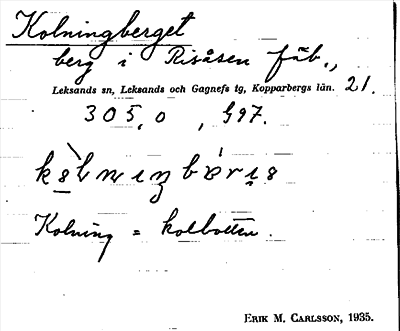 Kolningberget
berg i Risåsen fäb.,
Leksands sn, Leksands och Gagnefs tg, Kopparbergs län. 21.
305,0 , 997.
Kolning = kolbotten.
ERIK M. CARLSSON, 1935.